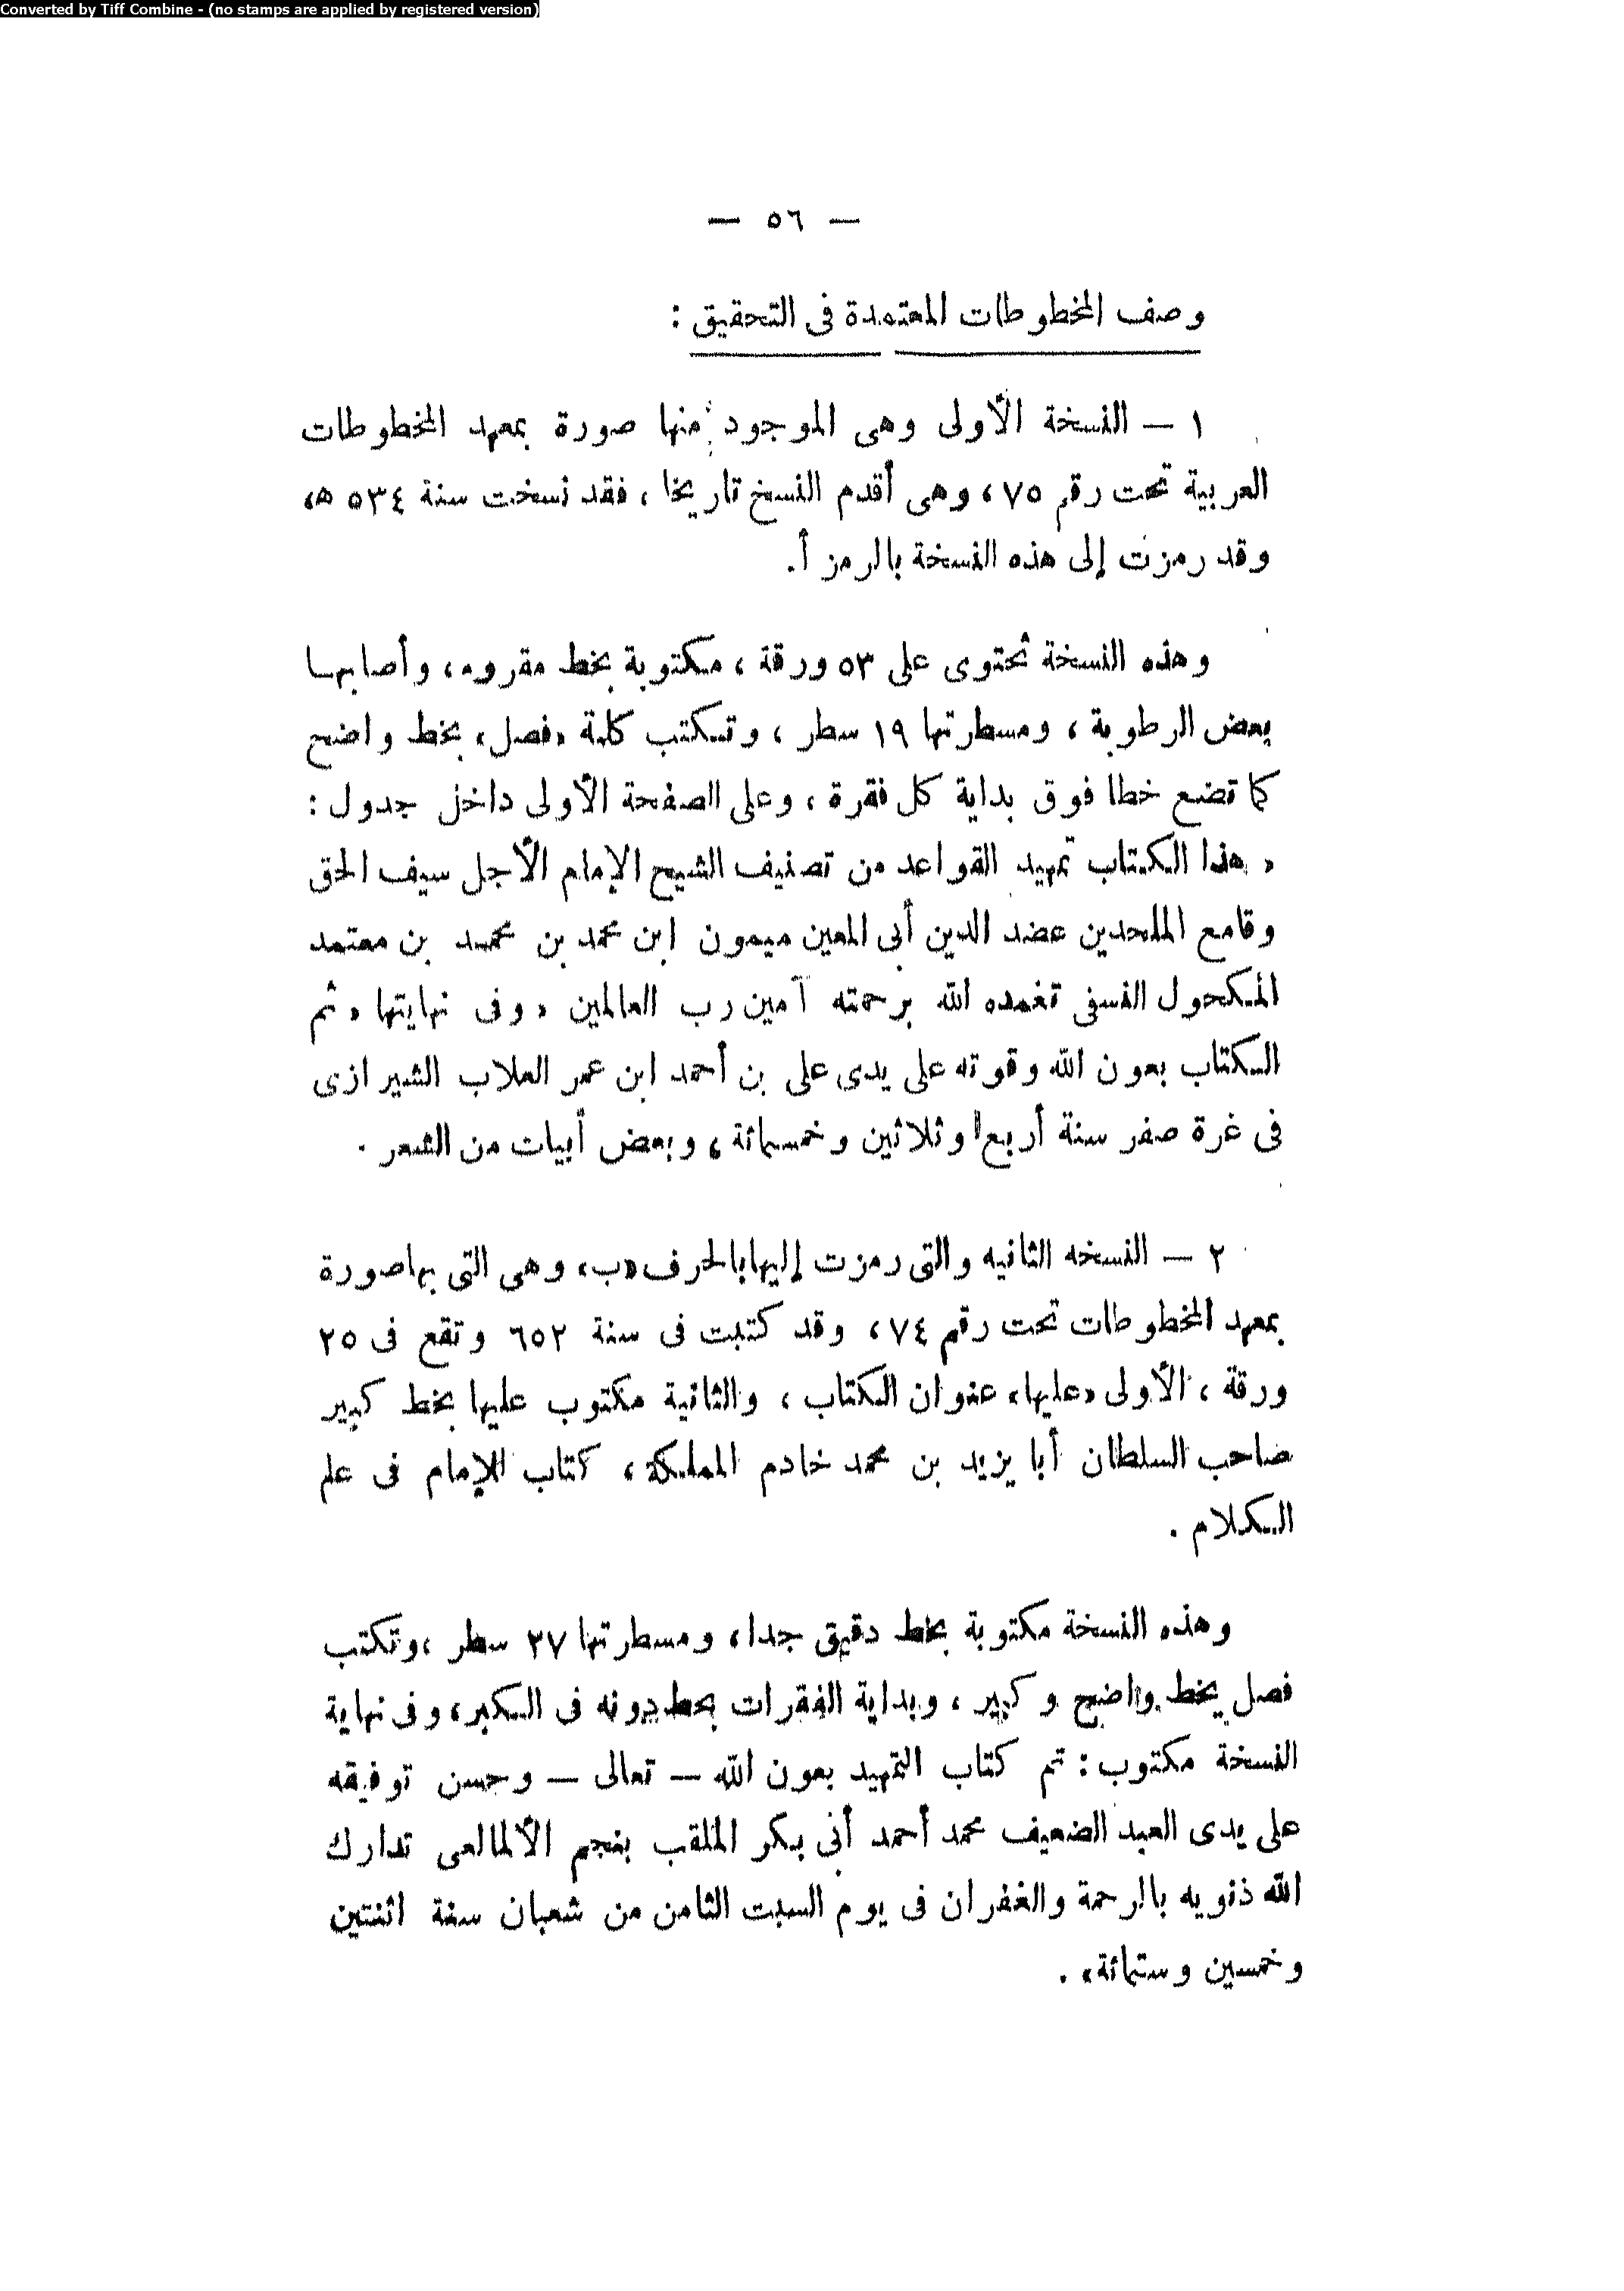 Converted by Tiff Combine - (no stamps are applied by registered version)
— ٥٦ —
وصف المخطوطات المعتمدة فى التحقيق :
١ — النسخة الأولى وهى الموجود منها صورة بمعهد المخطوطات
العربية تحت رقم ٧٥ ، وهى أقدم النسخ تاريخا ، فقد نسخت سنة ٥٣٤ هـ،
وقد رمزت إلى هذه النسخة بالرمز أ.
وهذه النسخة تحتوى على ٥٣ ورقة ، مكتوبة بخط مقروء ، وأصابها
بعض الرطوبة ، ومسطرتها ١٩ سطر ، وتكتب كلمة «فصل» بخط واضح
كما تضع خطا فوق بداية كل فقرة ، وعلى الصفحة الأولى داخل جدول :
« هذا الكتاب تمهيد القواعد من تصنيف الشيخ الإمام الأجل سيف الحق
وقامع الملحدين عضد الدين أبى المعين ميمون ابن محمد بن محمد بن معتمد
المكحول النسفى تغمده الله برحمته آمين رب العالمين «وفى نهايتها « ثم
الكتاب بعون الله وقوته على يدى على بن أحمد ابن عمر العلاب الشيرازى
فى غرة صفر سنة أربع وثلاثين وخمسمائة ، وبعض أبيات من الشعر .
٢ — النسخه الثانيه والتى رمزت إليها بالحرف «ب» وهى التى بها صورة
بمعهد المخطوطات تحت رقم ٧٤ ، وقد كتبت فى سنة ٦٥٢ وتقع فى ٢٥
ورقة ، الأولى «عليها» عنوان الكتاب ، والثانية مكتوب عليها بخط كبير
صاحب السلطان أبا يزيد بن محمد خادم المملكة ، كتاب للإمام فى علم
الكلام .
وهذه النسخة مكتوبة بخط دقيق جدا ، ومسطرتها ٢٧ سطر ، وتكتب
فصل بخط واضح وكبير ، وبداية الفقرات بخط دونه فى الكبر ، وفى نهاية
النسخة مكتوب : تم كتاب التمهيد بعون الله — تعالى — وحسن توفيقه
على يدى العبد الضعيف محمد أحمد أبى بكر الملقب بنجم الألمالعى تدارك
الله ذنوبه بالرحمة والغفران فى يوم السبت الثامن من شعبان سنة اثنتين
وخمسين وستمائة» .